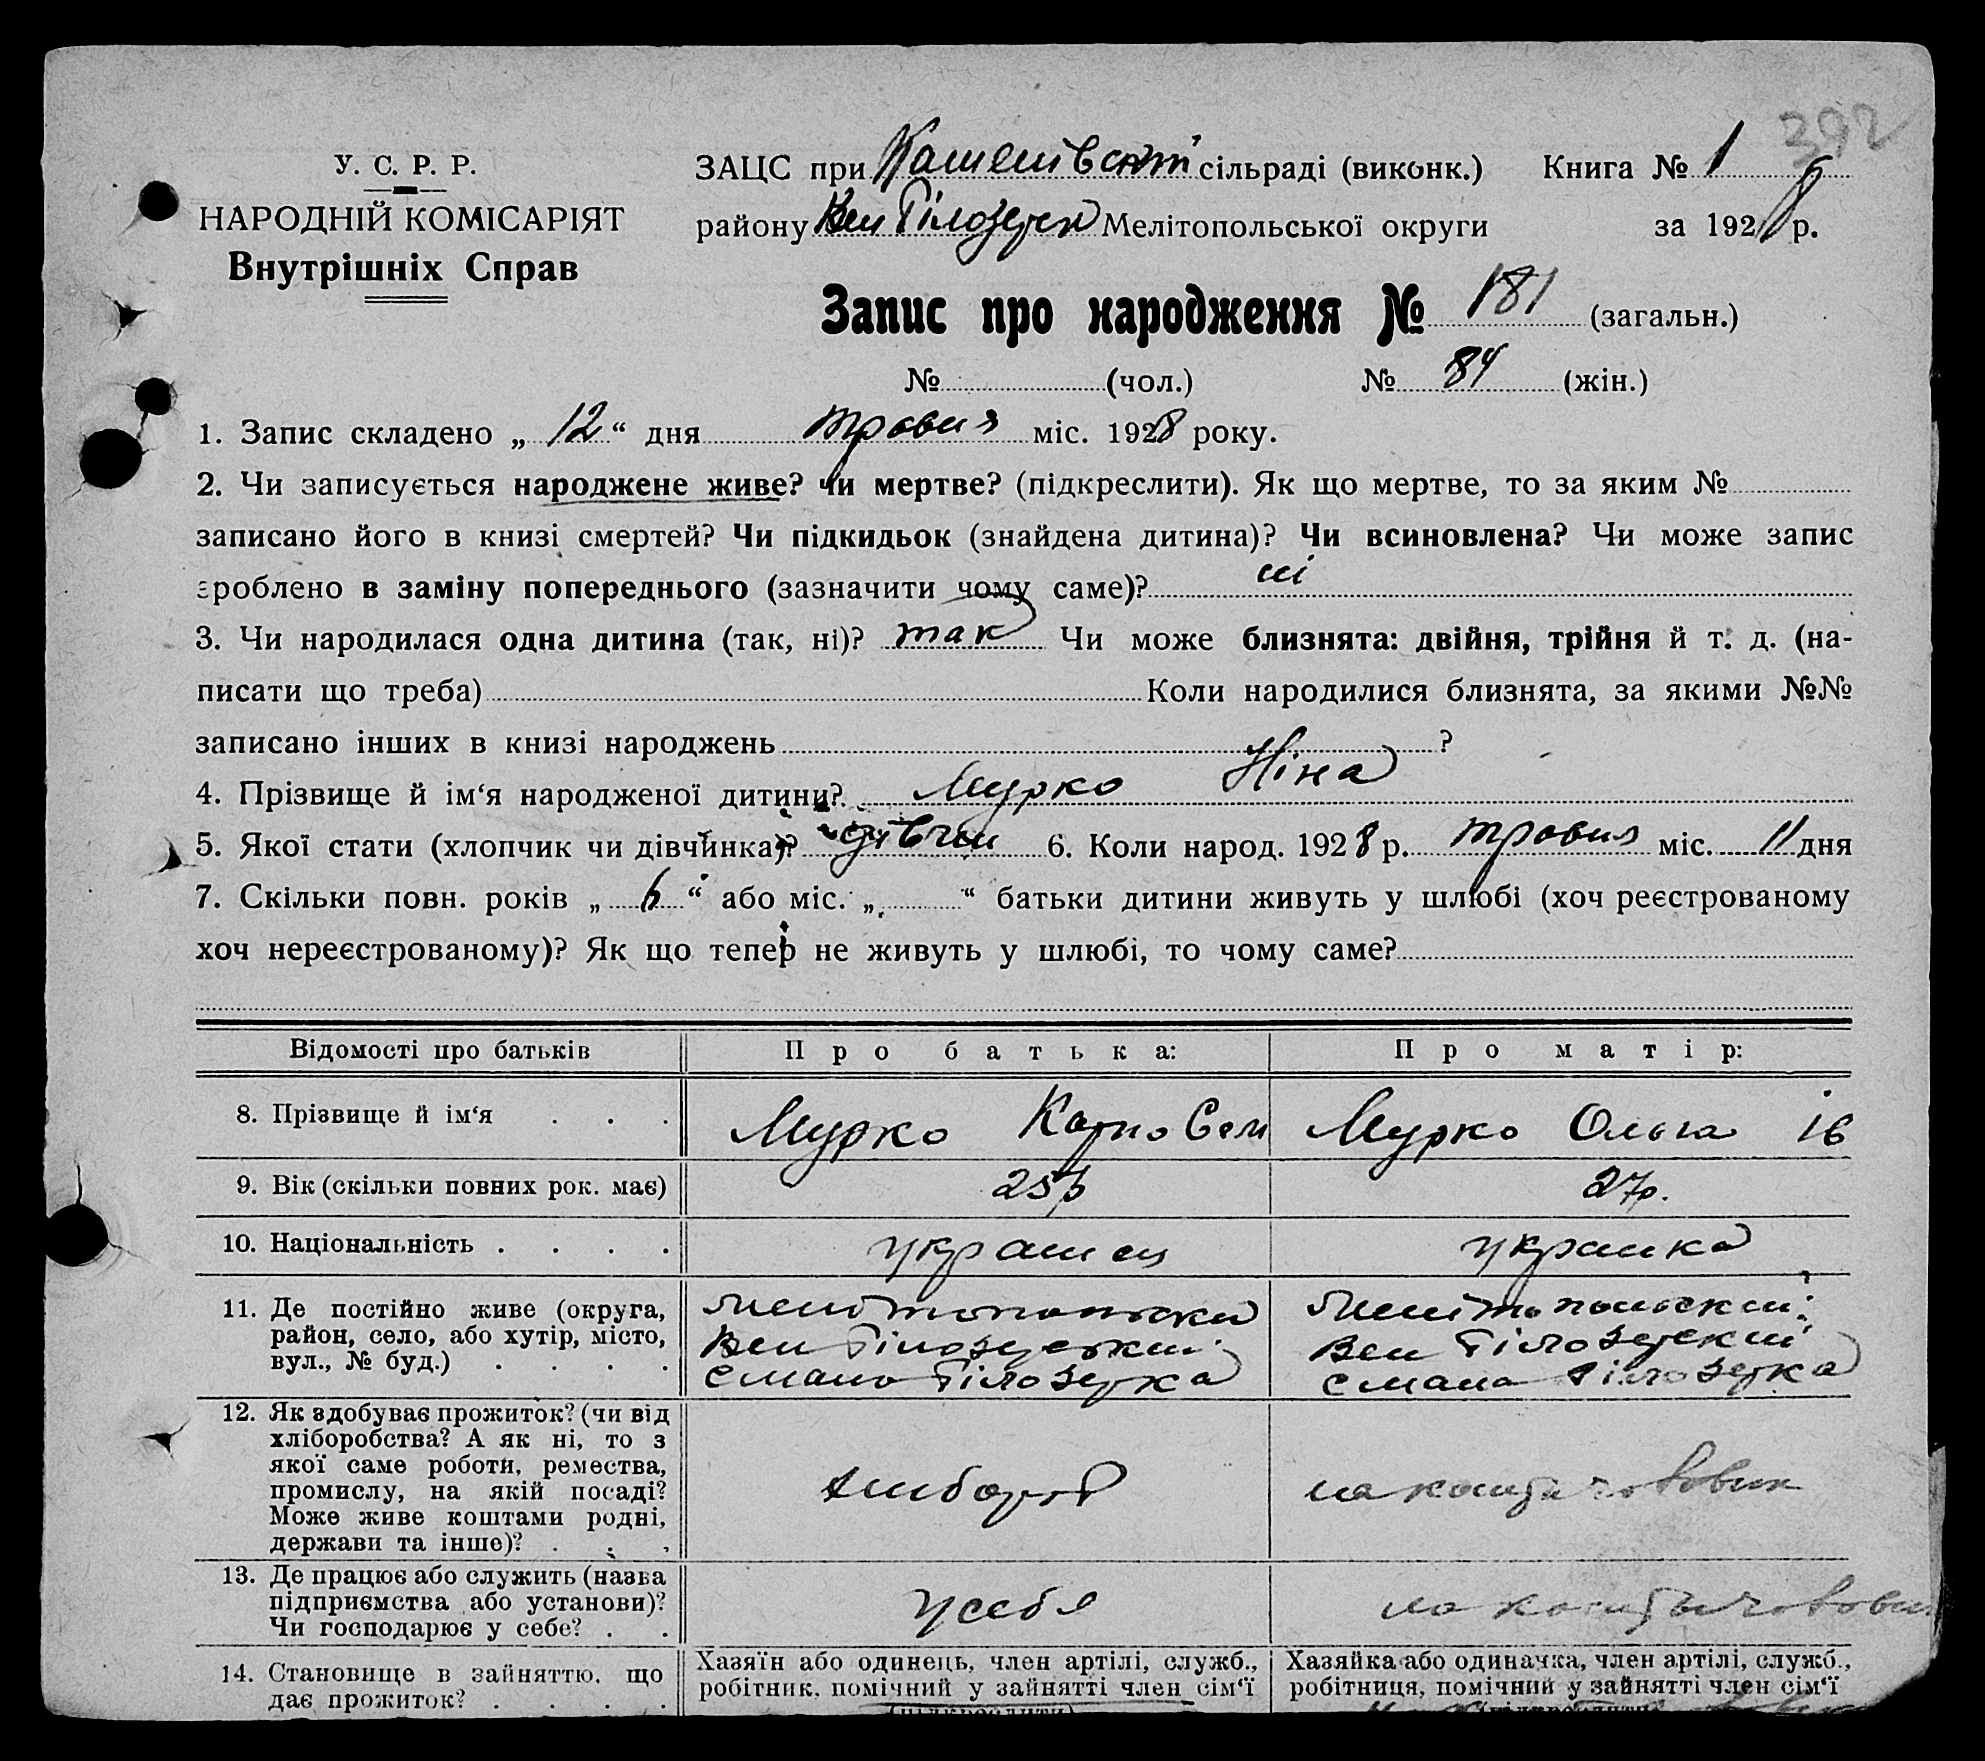 392
У. С. Р. Р.
НАРОДНІЙ КОМІСАРІЯТ
Внутрішніх Справ
ЗАЦС при сільраді (виконк.) Книга № 1
району Вел Білозерсь Мелітопольської округи за 1928 р.
Запис про народження № 181 (загальн.)
№ (чол.) № 84 (жін.)
1. Запис складено „ 12 “ дня травня міс. 1928 року.
2. Чи записується народжене живе? чи мертве? (підкреслити). Як що мертве, то за яким №
записано його в книзі смертей? Чи підкидьок (знайдена дитина)? Чи всиновлена? Чи може запис
зроблено в заміну попереднього (зазначити чому саме)? ні
3. Чи народилася одна дитина (так, ні)? так Чи може близнята: двійня, трійня й т. д. (на-
писати що треба) Коли народилися близнята, за якими №№
записано інших в книзі народжень ?
4. Прізвище й ім‘я народженої дитини? Мурко Ніна
5. Якої стати (хлопчик чи дівчинка)? дівчин 6. Коли народ. 1928 р. травня міс. 11 дня
7. Скільки повн. років „ 6 “ або міс. „ “ батьки дитини живуть у шлюбі (хоч реєстрованому
хоч нереєстрованому)? Як що тепер не живуть у шлюбі, то чому саме?
Відомості про батьків Про батька: Про матір:
8. Прізвище й ім‘я . . . Мурко Карпо Сем Мурко Ольга Ів
9. Вік (скільки повних рок. має) 25р 27р.
10. Національність . . . . українец українка
11. Де постійно живе (округа, район, село, або хутір, місто, вул., № буд.) . . . .
Мелітопольски
Вел Білозерський
с мала Білозерка
Мелітопольский
Вел Білозерский
с мала Білозерка
12. Як здобуває прожиток? (чи від
хліборобства? А як ні, то з
якої саме роботи, ремества,
промислу, на якій посаді?
Може живе коштами родні,
держави та інше)? . . .
хлібороб
на кошти чоловік
13. Де працює або служить (назва
підприємства або установи)?
Чи господарює у себе? . .
у себя
на кошты чоловік
14. Становище в зайняттю, що
дає прожиток? . . . .
Хазяїн або одинець, член артілі, служб.,
робітник, помічний у зайнятті член сім‘ї
(підкреслити)
Хазяйка або одиначка, член артілі, служб.,
робітниця, помічний у зайнятті член сім‘ї